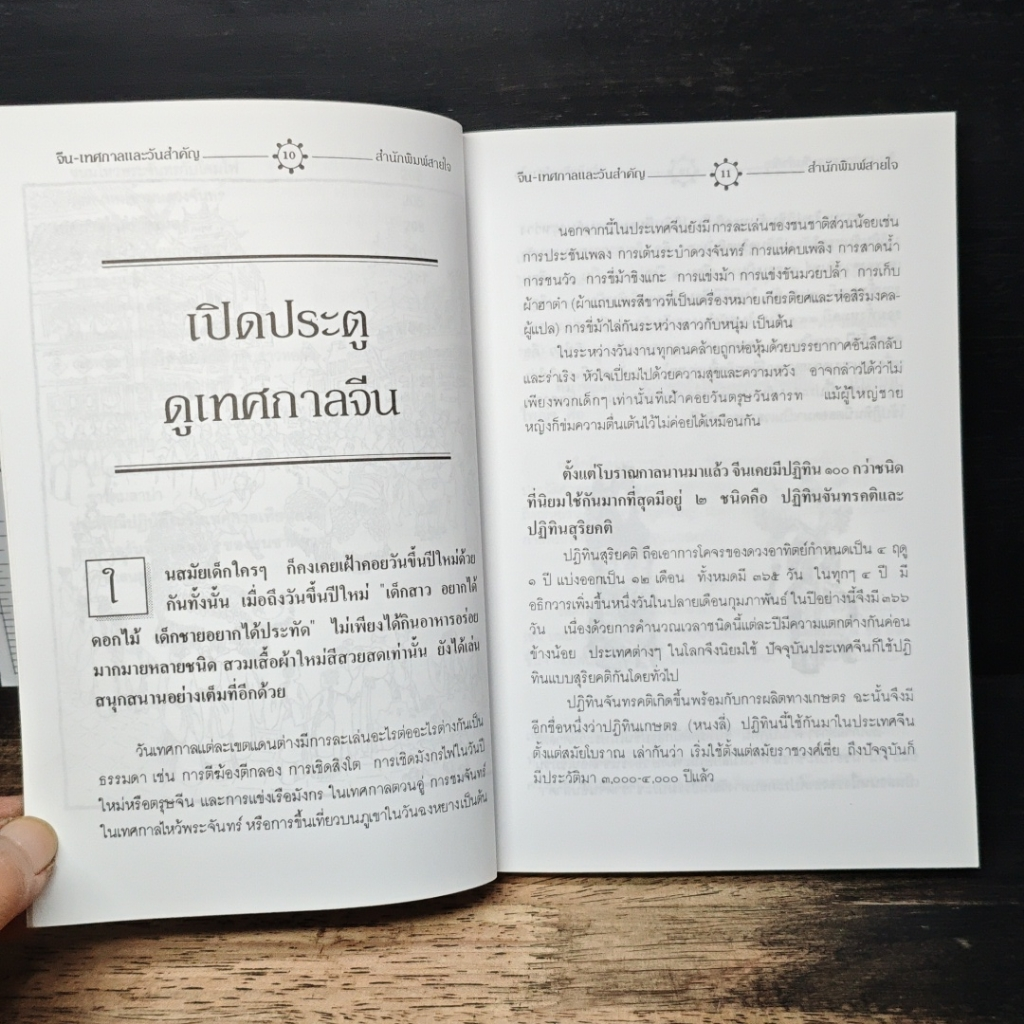 จีน-เทศกาลและวันสำคัญ 10 สำนักพิมพ์สายใจ
เปิดประตู
ดูเทศกาลจีน
ในสมัยเด็กใครๆ ก็คงเคยเฝ้าคอยวันขึ้นปีใหม่ด้วย
กันทั้งนั้น เมื่อถึงวันขึ้นปีใหม่ "เด็กสาว อยากได้
ดอกไม้ เด็กชายอยากได้ประทัด" ไม่เพียงได้กินอาหารอร่อย
มากมายหลายชนิด สวมเสื้อผ้าใหม่สีสวยสดเท่านั้น ยังได้เล่น
สนุกสนานอย่างเต็มที่อีกด้วย
วันเทศกาลแต่ละเขตแดนต่างมีการละเล่นอะไรต่ออะไรต่างกันเป็น
ธรรมดา เช่น การตีฆ้องตีกลอง การเชิดสิงโต การเชิดมังกรไฟในวันปี
ใหม่หรือตรุษจีน และการแข่งเรือมังกร ในเทศกาลตวนอู่ การชมจันทร์
ในเทศกาลไหว้พระจันทร์ หรือการขึ้นเที่ยวบนภูเขาในวันฉงหยางเป็นต้น
จีน-เทศกาลและวันสำคัญ 11 สำนักพิมพ์สายใจ
นอกจากนี้ในประเทศจีนยังมีการละเล่นของชนชาติส่วนน้อยเช่น
การประชันเพลง การเต้นระบำดวงจันทร์ การแห่คบเพลิง การสาดน้ำ
การชนวัว การขี่ม้าชิงแกะ การแข่งม้า การแข่งขันมวยปล้ำ การเก็บ
ผ้าฮาด๋า (ผ้าแถบแพรสีขาวที่เป็นเครื่องหมายเกียรติยศและห่อสิริมงคล-
ผู้แปล) การขี่ม้าไล่กันระหว่างสาวกับหนุ่ม เป็นต้น
ในระหว่างวันงานทุกคนคล้ายถูกห่อหุ้มด้วยบรรยากาศอันลึกลับ
และร่าเริง หัวใจเปี่ยมไปด้วยความสุขและความหวัง อาจกล่าวได้ว่าไม่
เพียงพวกเด็กๆ เท่านั้นที่เฝ้าคอยวันตรุษวันสารท แม้ผู้ใหญ่ชาย
หญิงก็ข่มความตื่นเต้นไว้ไม่ค่อยได้เหมือนกัน
ตั้งแต่โบราณกาลนานมาแล้ว จีนเคยมีปฏิทิน ๑๐๐ กว่าชนิด
ที่นิยมใช้กันมากที่สุดมีอยู่ ๒ ชนิดคือ ปฏิทินจันทรคติและ
ปฏิทินสุริยคติ
ปฏิทินสุริยคติ ถือเอาการโคจรของดวงอาทิตย์กำหนดเป็น ๔ ฤดู
๑ ปี แบ่งออกเป็น ๑๒ เดือน ทั้งหมดมี ๓๖๕ วัน ในทุกๆ ๔ ปี มี
อธิกวารเพิ่มขึ้นหนึ่งวันในปลายเดือนกุมภาพันธ์ ในปีอย่างนี้จึงมี ๓๖๖
วัน เนื่องด้วยการคำนวณเวลาชนิดนี้แต่ละปีมีความแตกต่างกันค่อน
ข้างน้อย ประเทศต่างๆ ในโลกจึงนิยมใช้ ปัจจุบันประเทศจีนก็ใช้ปฏิ
ทินแบบสุริยคติกันโดยทั่วไป
ปฏิทินจันทรคติเกิดขึ้นพร้อมกับการผลิตทางเกษตร ฉะนั้นจึงมี
อีกชื่อหนึ่งว่าปฏิทินเกษตร (หนงลี่) ปฏิทินนี้ใช้กันมาในประเทศจีน
ตั้งแต่สมัยโบราณ เล่ากันว่า เริ่มใช้ตั้งแต่สมัยราชวงศ์เซี่ย ถึงปัจจุบันก็
มีประวัติมา ๓,๐๐๐-๔,๐๐๐ ปีแล้ว